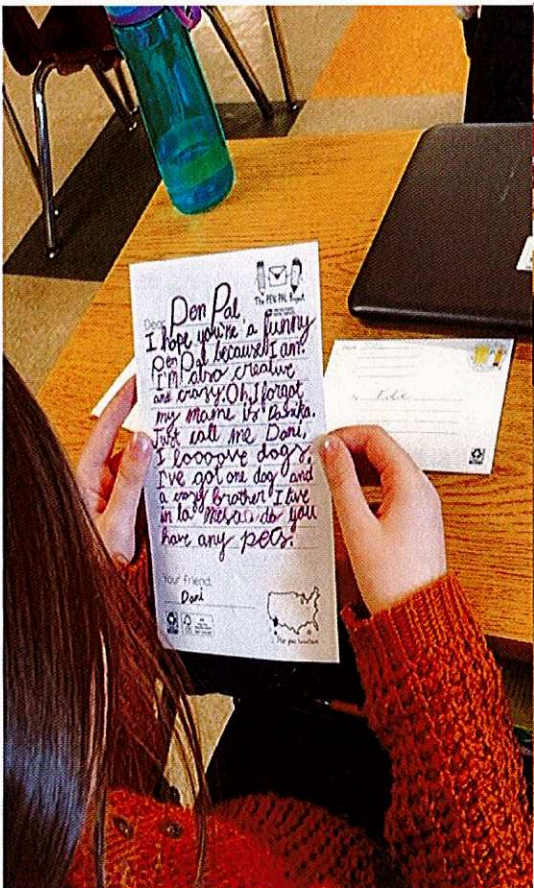 The PEN PAL Project
Dear Pen Pal,
I hope you're a funny
Pen Pal because I am.
I'm also creative
and crazy. Oh, I forgot
my name is
Just call me Dani,
I loooove dogs,
I've got one dog and
a crazy brother I live
in la Mesa do you
have any pets?
Your friend,
Dani